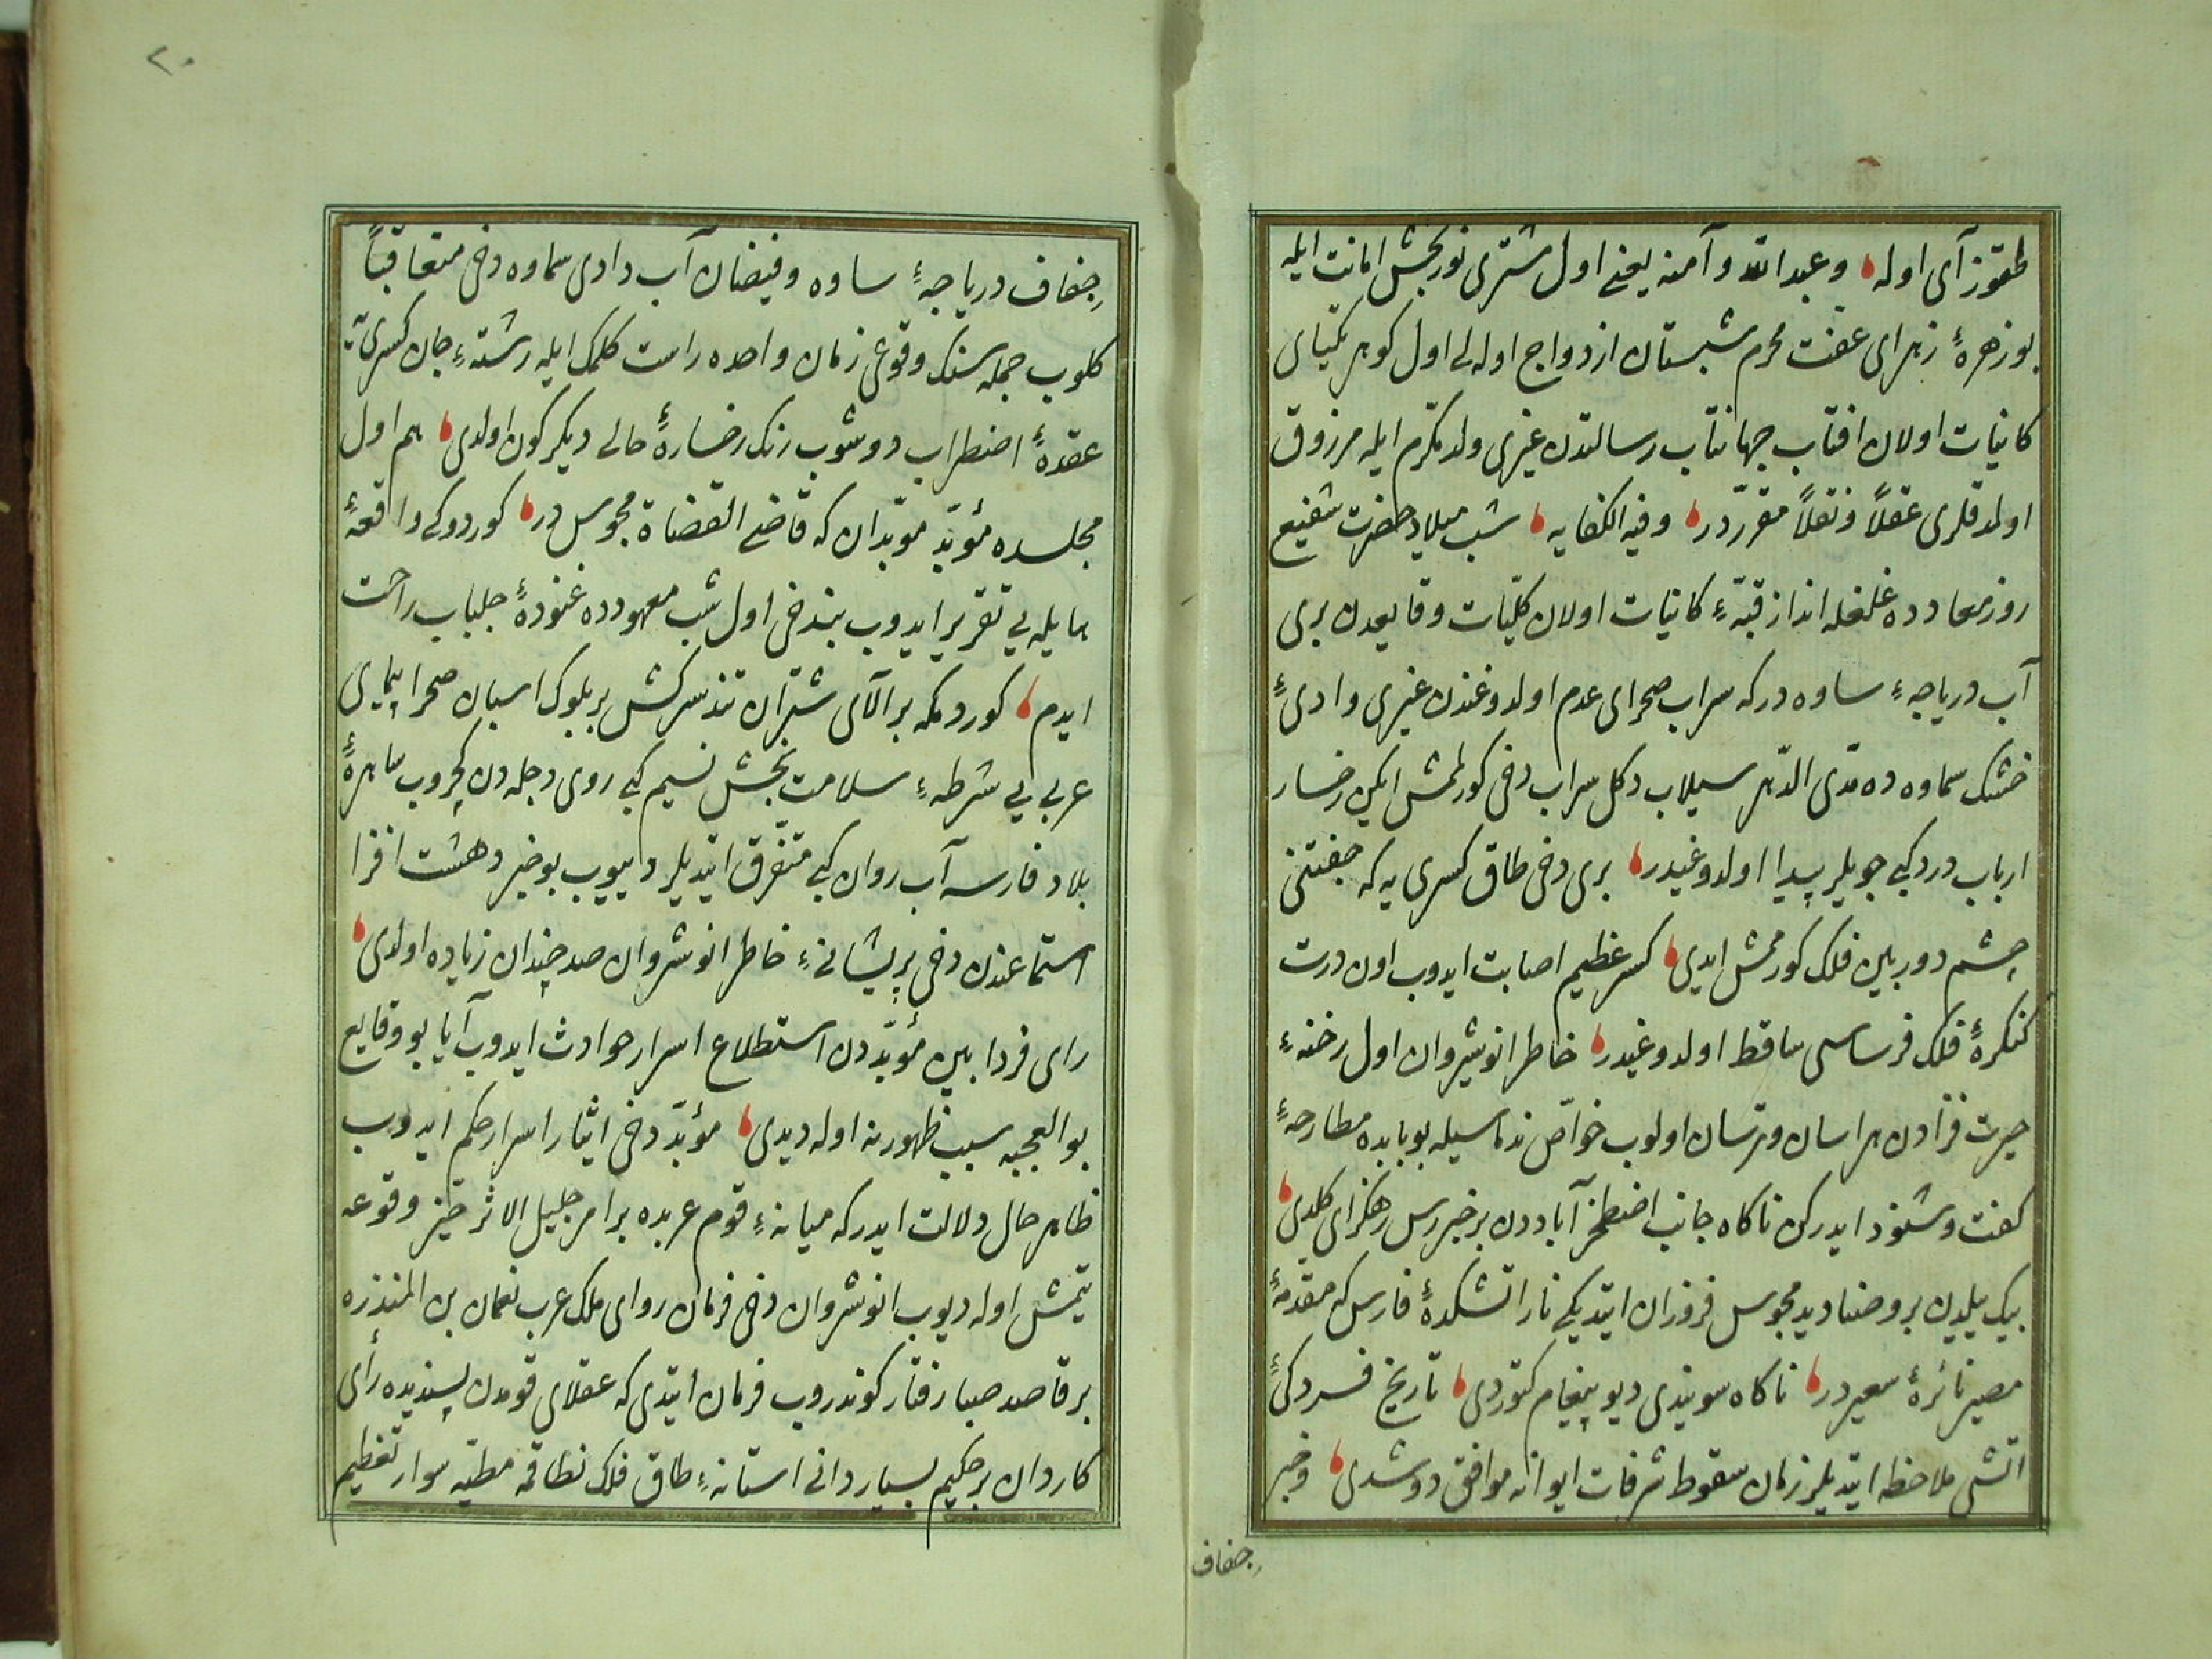 طقوز آی اوله وعبد الله وآمنه یعنی اول مشتری نوربخش امانت ایله
بو زهرهٔ زهرای عفت محرم شبستان ازدواج اوله لی اول کوهر یکتای
کاینات اولان افتاب جهانتاب رسالتدن غیری ولد مکرم ایله مرزوق
اولمدقلری عقلاً ونقلاً مقرّردر وفیه الکفایه شب میلاد حضرت شفیع
روز معادده غلغله انداز قبّهٔ کاینات اولان کلیّات وقایعدن بری
آب دریاچهٔ ساوه درکه سراب صحرای عدم اولدوغندن غیری وادیٔ
خشک سماوه ده مدّی الدّهر سیلاب دکل سراب دخی کورلمش ایکن رخسار
ارباب درد کبی جویلر پیدا اولدوغیدر بری دخی طاق کسری یه که جفتنی
چشم دوربین فلک کورممش ایدی کسر عظیم اصابت ایدوب اون درت
کنکرهٔ فلک فرساسی ساقط اولدوغیدر خاطر انوشیروان اول رخنهٔ
حیرت فزادن هراسان وترسان اولوب خواصّ ندماسیله بو بابده مطارحهٔ
کفت وشنود ایدرکن ناکاه جانب اصطخر آباددن بر خبررس رهکزای کلدی
بیک ییلدن برو صنادید مجوس فروزان ایتدیکی نار اتشکدهٔ فارس که مقدمهٔ
مصیر نائرهٔ سعیردر ناکاه سویندی دیو پیغام کتوردی تاریخ فسردکیٔ
اتشی ملاحظه ایتدیلر زمان سقوط شرفات ایوانه موافق دوشدی وخبر
جفاف
٢٠
جفاف دریاچهٔ ساوه وفیضان آب وادی سماوه دخی متعاقباً
کلوب جمله سنک وقوعی زمان واحده راست کلمک ایله رشتهٔ جان کسری یه
عقدهٔ اضطراب دوشوب رنک رخسارهٔ حالی دیکرکون اولدی هم اول
مجلسده مؤبد موبدان که قاضی القضاة مجوس در کوردوکی واقعهٔ
هایله یی تقریر ایدوب بندخی اول شب معهودده غنودهٔ جلباب راحت
ایدم کوردمکه بر الای شتران تند سرکش بر بلوک اسبان صحرا پیمای
عربی یی شرطهٔ سلامت بخش نسیم کبی روی دجله دن کچروب ساهرهٔ
بلاد فارسه آب روان کبی متفرّق ایتدیلر دییوب بو خبر وحشت افزا
استماعندن دخی پریشانیٔ خاطر انوشروان صد چندان زیاده اولدی
رای فردا بین مؤبددن استطلاع اسرار حوادث ایدوب آیا بو وقایع
بو العجبه سبب ظهور نه اوله دیدی مؤبد دخی ایثار اسرار حکم ایدوب
ظاهر حال دلالت ایدر که میانهٔ قوم عربده بر امر جلیل الاثر حیّز وقوعه
یتمش اوله دیوب انوشروان دخی فرمان روای ملک عرب نعمان بن المنذره
بر قاصد صبا رفتار کوندروب فرمان ایتدی که عقلای قومدن پسندیده رأی
کاردان بر حکیم بسیار دانی استانهٔ طاق فلک نطاقمه مطیّه سوار تعظیم